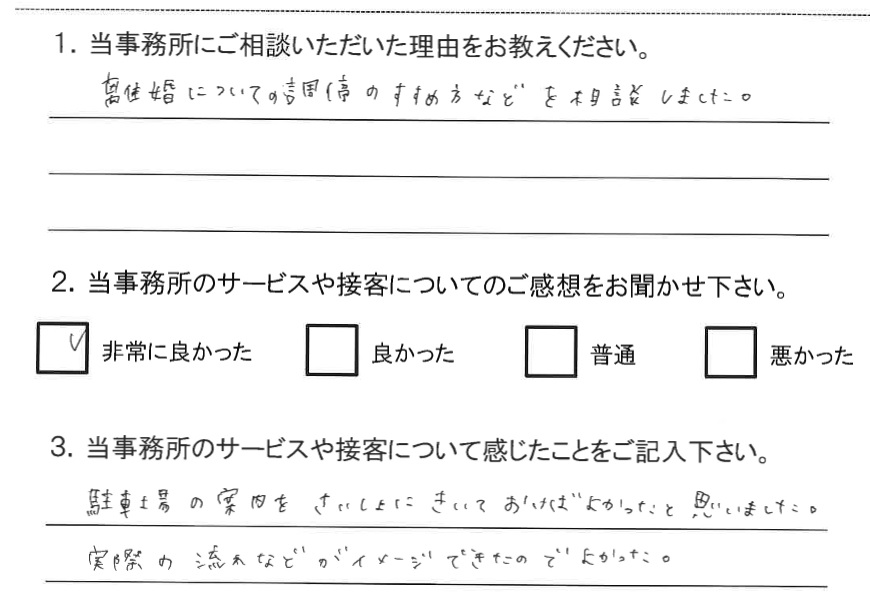 1. 当事務所にご相談いただいた理由をお教えください。
離婚についての調停のすすめ方などを相談しました。
2. 当事務所のサービスや接客についてのご感想をお聞かせ下さい。
非常に良かった 良かった 普通 悪かった
3. 当事務所のサービスや接客について感じたことをご記入下さい。
駐車場の案内をさいしょにきいておけばよかったと思いました。
実際の流れなどがイメージできたのでよかった。